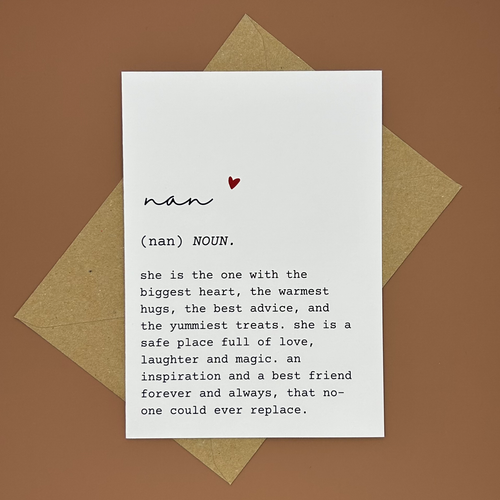 nan
(nan) NOUN.
she is the one with the
biggest heart, the warmest
hugs, the best advice, and
the yummiest treats. she is a
safe place full of love,
laughter and magic. an
inspiration and a best friend
forever and always, that no-
one could ever replace.